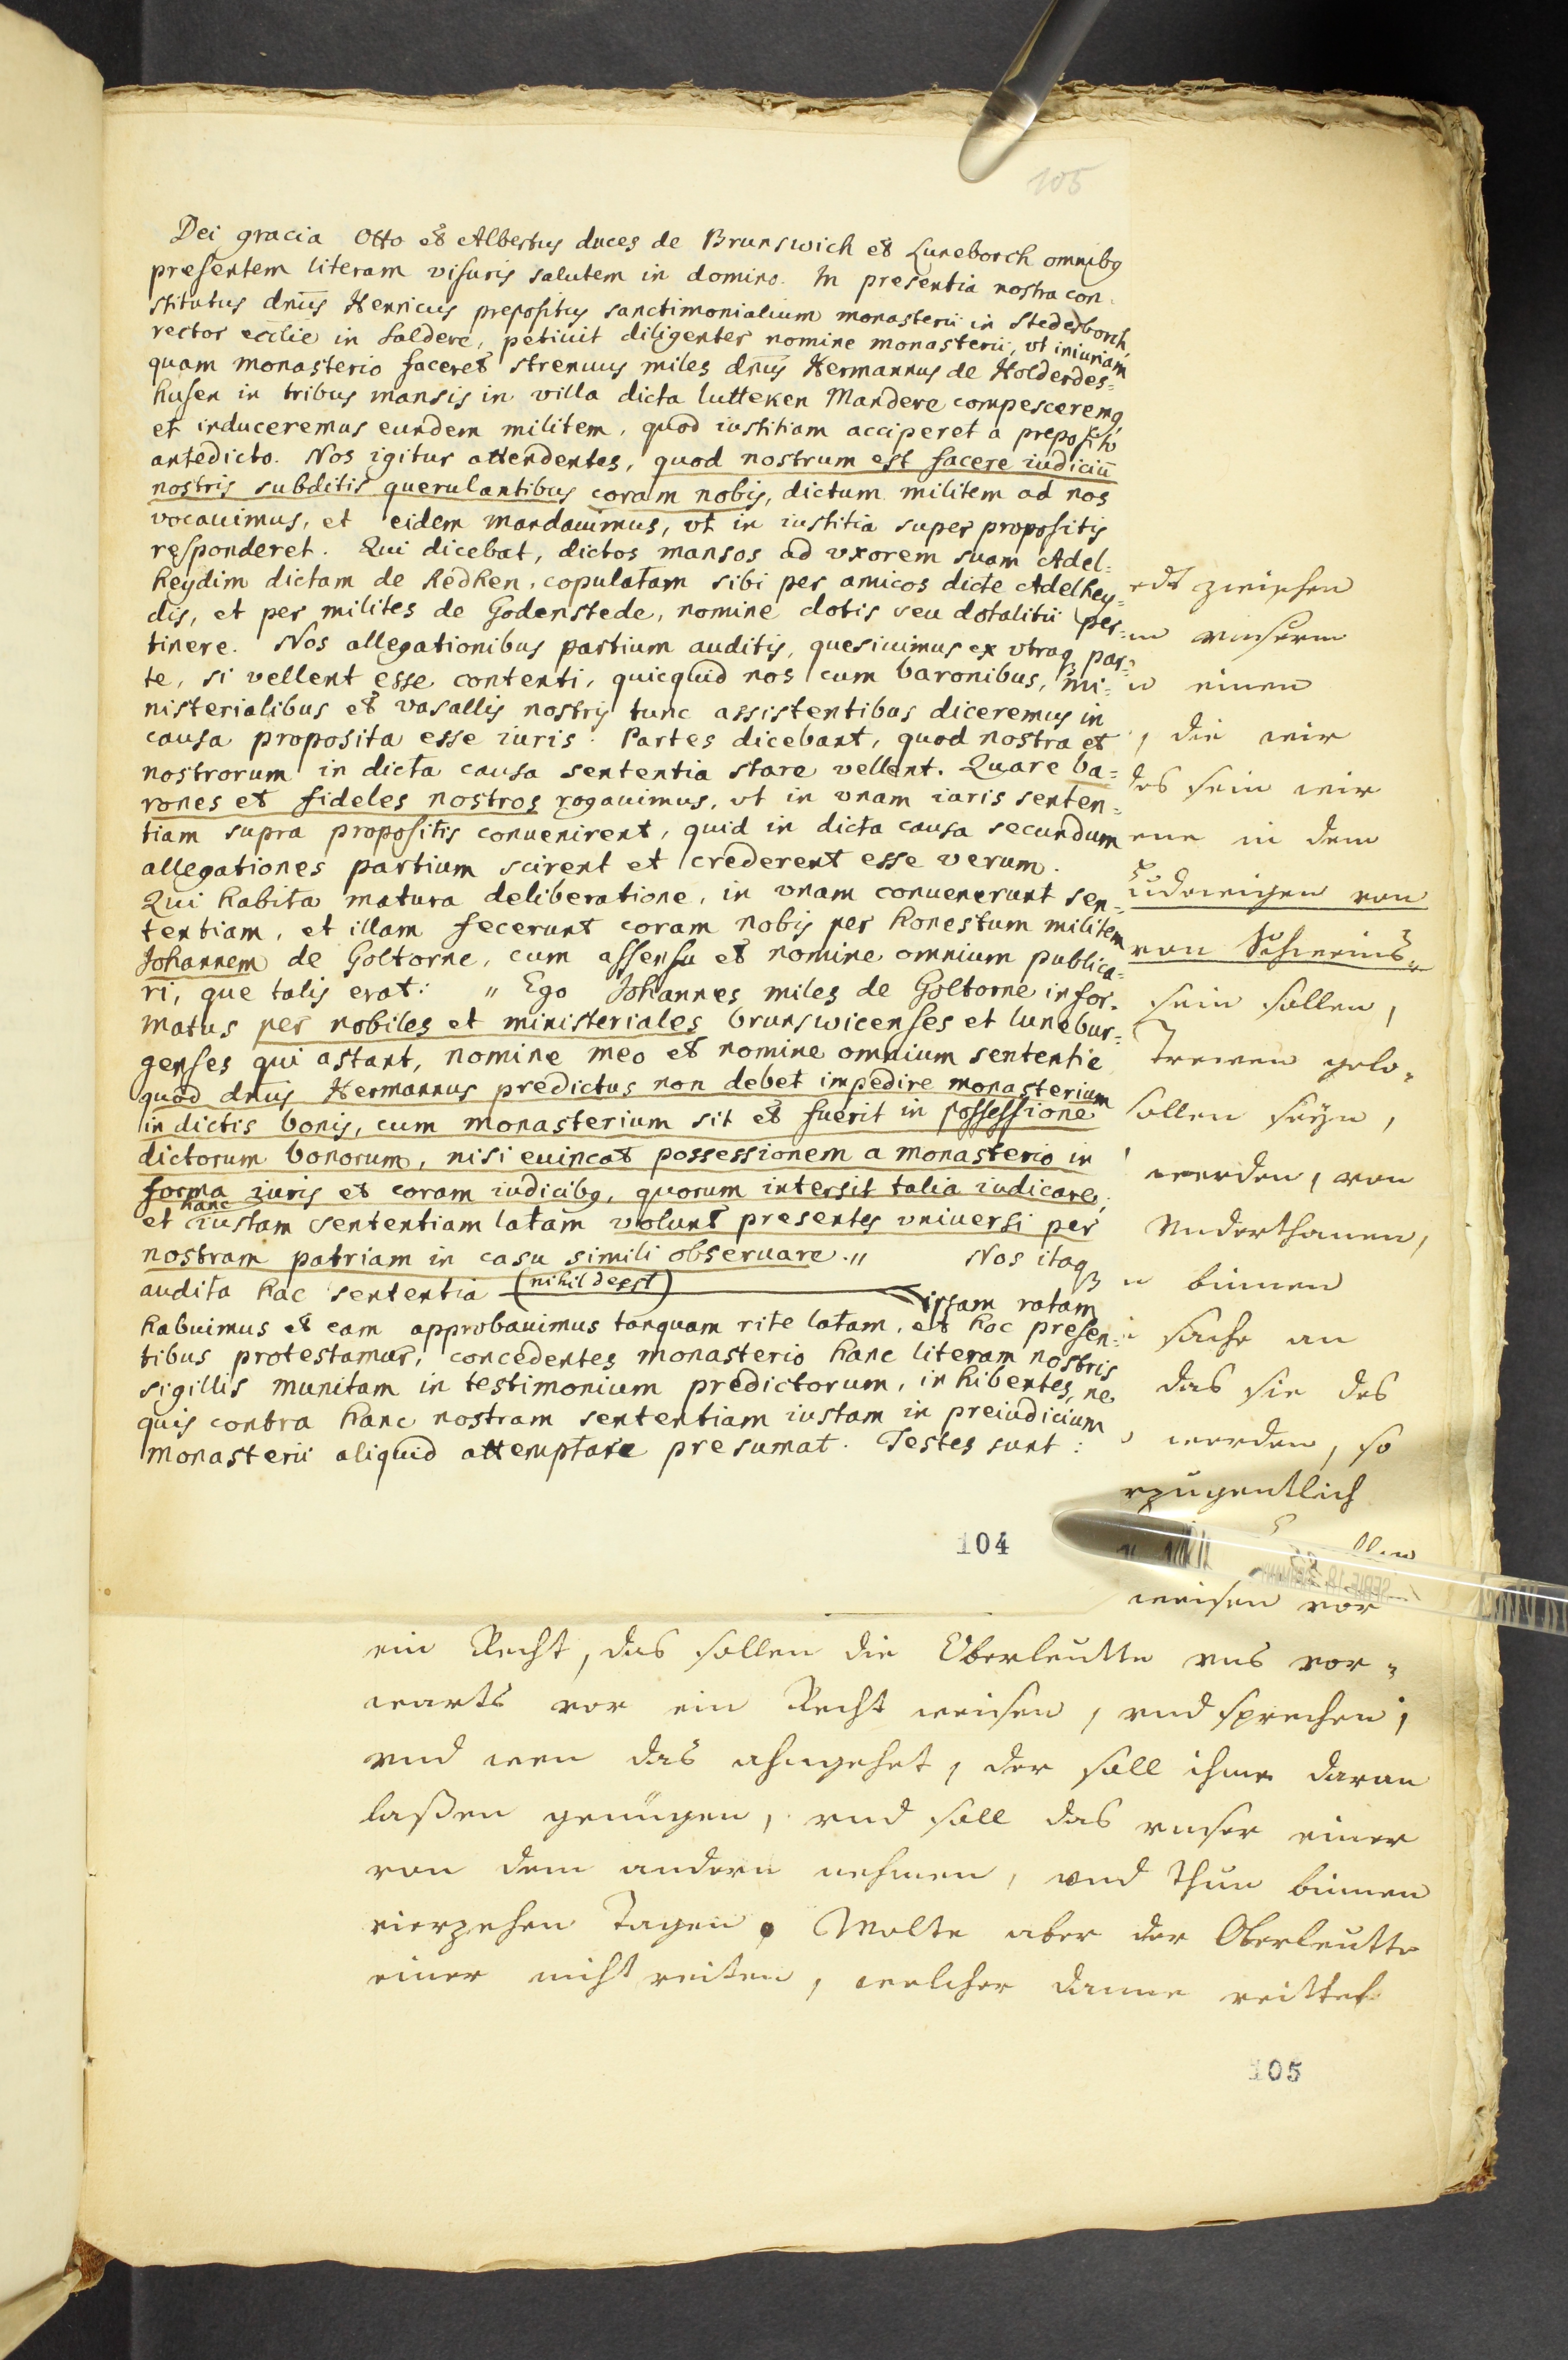 105
Dei gracia Otto et Albertus duces de Brunswich et Luneborch omnibq
presentem literam visuris salutem in domino. In presentia nostra con-
stitutus dnus Henricus prepositus sanctimonialium monasterii in Stederborch,
rector ecclie in Saldere, petiuit diligenter nomine monasterii, vt iniuriam
quam monasterio faceret strenuus miles dnus Hermannus de Holderdes=
husen in tribus mansis in villa dicta lutteken Mandere compesceremq
et induceremus eundem militem, quod iustitiam acciperet a preposito
antedicto. Nos igitur attendentes, quod nostrum est facere iudiciū
nostris subditis querulantibus coram nobis, dictum militem ad nos
vocauimus, et eidem mandauimus, vt in iustitia super propositis
responderet. Qui dicebat, dictos mansos ad vxorem suam Adel=
heydim dictam de Redken, copulatam sibi per amicos dicte Adelhey=
dis, et per milites de Godenstede, nomine dotis seu dotalitii per=
tinere. Nos allegationibus partium auditis, quesiuimus ex vtraqꝫ par=
te, si vellent esse contenti, quicquid nos cum baronibus, mi=
nisterialibus et vasallis nostris tunc assistentibus diceremus in
causa proposita esse iuris. Partes dicebant, quod nostra et
nostrorum in dicta causa sententia stare vellent. Quare ba=
rones et fideles nostros rogauimus, vt in vnam iuris senten=
tiam supra propositis conuenirent, quid in dicta causa secundum
allegationes partium scirent et crederent esse verum.
Qui habita matura deliberatione, in vnam conuenerunt sen=
tentiam, et illam fecerunt coram nobis per honestum militem
Johannem de Goltorne, cum assensu et nomine omnium publica=
ri, que talis erat: „ Ego Johannes miles de Goltorne infor=
matus per nobiles et ministeriales brunswicenses et lunebur=
genses qui astant, nomine meo et nomine omnium sententie
quod dnus Hermannus predictus non debet impedire monasterium
in dictis bonis, cum monasterium sit et fuerit in possessione
dictorum bonorum, nisi euincat possessionem a monasterio in
forma iuris et coram iudicibq, quorum intersit talia iudicare,
et hanc iustam sententiam latam volunt presentes vniuersi per
nostram patriam in casu simili obseruare.„ Nos itaqꝫ
audita hac sententia (nihil deest) ipsam ratam
habuimus et eam approbauimus tanquam rite latam, et hoc presen=
tibus protestamur, concedentes monasterio hanc literam nostris
sigillis munitam in testimonium predictorum, inhibentes, ne
quis contra hanc nostram sententiam iustam in preiudicium
monasterii aliquid attemptare presumat. Testes sunt:
104
zwischen
vnserm
einen
, die wir
des sein wir
ene in dem
Ludewigen von
von
sein sollen,
Trewen gelo=
sollen seyn,
werden, von
Vnderthanen,
binnen
sache an
das sie des
werden, so
weisen vor
ein Recht, das sollen die Oberleutte vns vor=
warts vor ein Recht weisen, vnd sprechen,
vnd wen das ahngehet, der soll ihme daran
laßen genügen, vnd soll das vnser einer
von dem andern nehmen, vnd thun binnen
vierzehen Tagen. Wolte aber der Oberleutte
einer nicht reiten, welcher danne reittet
105